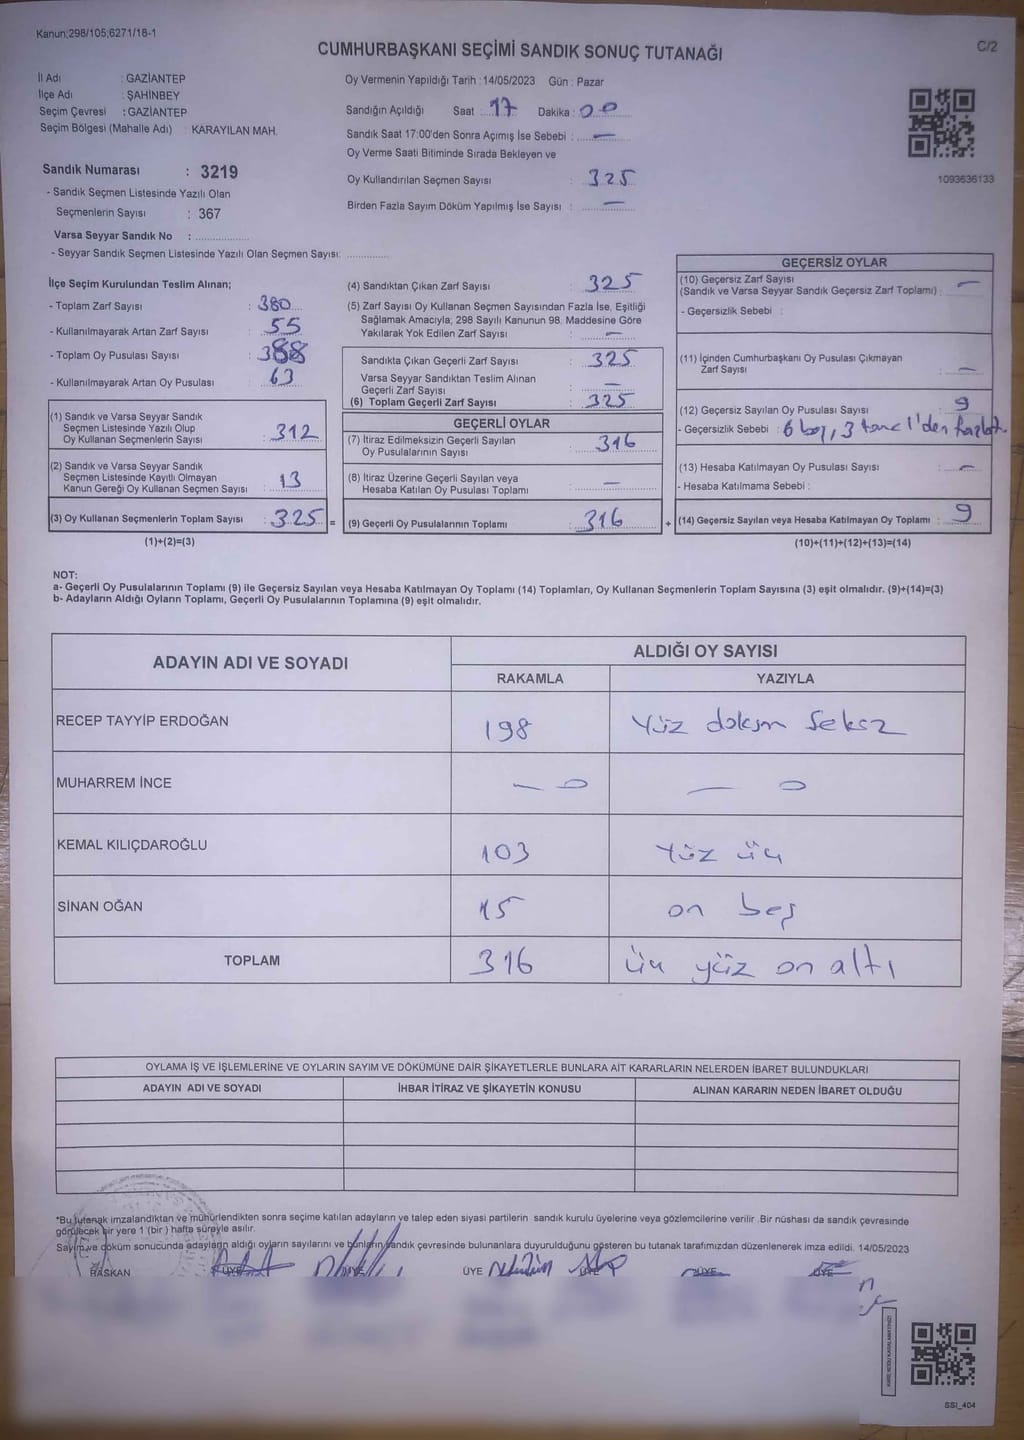 Kanun;298/105;6271/18-1
C/2
CUMHURBAŞKANI SEÇİMİ SANDIK SONUÇ TUTANAĞI
İl Adı : GAZİANTEP
İlçe Adı : ŞAHİNBEY
Seçim Çevresi : GAZİANTEP
Seçim Bölgesi (Mahalle Adı) : KARAYILAN MAH.
Sandık Numarası : 3219
- Sandık Seçmen Listesinde Yazılı Olan
Seçmenlerin Sayısı : 367
Varsa Seyyar Sandık No :
- Seyyar Sandık Seçmen Listesinde Yazılı Olan Seçmen Sayısı:
Oy Vermenin Yapıldığı Tarih : 14/05/2023 Gün : Pazar
Sandığın Açıldığı Saat 17 Dakika : 00
Sandık Saat 17:00'den Sonra Açımış İse Sebebi : —
Oy Verme Saati Bitiminde Sırada Bekleyen ve
Oy Kullandırılan Seçmen Sayısı : 325
Birden Fazla Sayım Döküm Yapılmış İse Sayısı : —
1093636133
İlçe Seçim Kurulundan Teslim Alınan;
- Toplam Zarf Sayısı : 380
- Kullanılmayarak Artan Zarf Sayısı : 55
- Toplam Oy Pusulası Sayısı : 388
- Kullanılmayarak Artan Oy Pusulası : 63
(1) Sandık ve Varsa Seyyar Sandık
Seçmen Listesinde Yazılı Olup
Oy Kullanan Seçmenlerin Sayısı : 312
(2) Sandık ve Varsa Seyyar Sandık
Seçmen Listesinde Kayıtlı Olmayan
Kanun Gereği Oy Kullanan Seçmen Sayısı : 13
(3) Oy Kullanan Seçmenlerin Toplam Sayısı : 325 =
(1)+(2)=(3)
(4) Sandıktan Çıkan Zarf Sayısı : 325
(5) Zarf Sayısı Oy Kullanan Seçmen Sayısından Fazla İse, Eşitliği
Sağlamak Amacıyla; 298 Sayılı Kanunun 98. Maddesine Göre
Yakılarak Yok Edilen Zarf Sayısı : —
Sandıkta Çıkan Geçerli Zarf Sayısı : 325
Varsa Seyyar Sandıktan Teslim Alınan
Geçerli Zarf Sayısı : —
(6) Toplam Geçerli Zarf Sayısı : 325
GEÇERLİ OYLAR
(7) İtiraz Edilmeksizin Geçerli Sayılan
Oy Pusulalarının Sayısı : 316
(8) İtiraz Üzerine Geçerli Sayılan veya
Hesaba Katılan Oy Pusulası Toplamı : —
(9) Geçerli Oy Pusulalarının Toplamı : 316 +
GEÇERSİZ OYLAR
(10) Geçersiz Zarf Sayısı
(Sandık ve Varsa Seyyar Sandık Geçersiz Zarf Toplamı) : —
- Geçersizlik Sebebi :
(11) İçinden Cumhurbaşkanı Oy Pusulası Çıkmayan
Zarf Sayısı : —
(12) Geçersiz Sayılan Oy Pusulası Sayısı : 9
- Geçersizlik Sebebi : 6 boş, 3 tane 1'den fazla
(13) Hesaba Katılmayan Oy Pusulası Sayısı : —
- Hesaba Katılmama Sebebi :
(14) Geçersiz Sayılan veya Hesaba Katılmayan Oy Toplamı : 9
(10)+(11)+(12)+(13)=(14)
NOT:
a- Geçerli Oy Pusulalarının Toplamı (9) ile Geçersiz Sayılan veya Hesaba Katılmayan Oy Toplamı (14) Toplamları, Oy Kullanan Seçmenlerin Toplam Sayısına (3) eşit olmalıdır. (9)+(14)=(3)
b- Adayların Aldığı Oyların Toplamı, Geçerli Oy Pusulalarının Toplamına (9) eşit olmalıdır.
ADAYIN ADI VE SOYADI ALDIĞI OY SAYISI
RAKAMLA YAZIYLA
RECEP TAYYİP ERDOĞAN 198 Yüz doksan Sekiz
MUHARREM İNCE — 0 — 0
KEMAL KILIÇDAROĞLU 103 Yüz üç
SİNAN OĞAN 15 on beş
TOPLAM 316 üç yüz on altı
OYLAMA İŞ VE İŞLEMLERİNE VE OYLARIN SAYIM VE DÖKÜMÜNE DAİR ŞİKAYETLERLE BUNLARA AİT KARARLARIN NELERDEN İBARET BULUNDUKLARI
ADAYIN ADI VE SOYADI İHBAR İTİRAZ VE ŞİKAYETİN KONUSU ALINAN KARARIN NEDEN İBARET OLDUĞU
*Bu tutanak imzalandıktan ve mühürlendikten sonra seçime katılan adayların ve talep eden siyasi partilerin sandık kurulu üyelerine veya gözlemcilerine verilir .Bir nüshası da sandık çevresinde
görülecek bir yere 1 (bir ) hafta süreyle asılır.
Sayım ve döküm sonucunda adayların aldığı oyların sayılarını ve bunların sandık çevresinde bulunanlara duyurulduğunu gösteren bu tutanak tarafımızdan düzenlenerek imza edildi. 14/05/2023
BAŞKAN ÜYE ÜYE ÜYE ÜYE ÜYE ÜYE
SSI_404